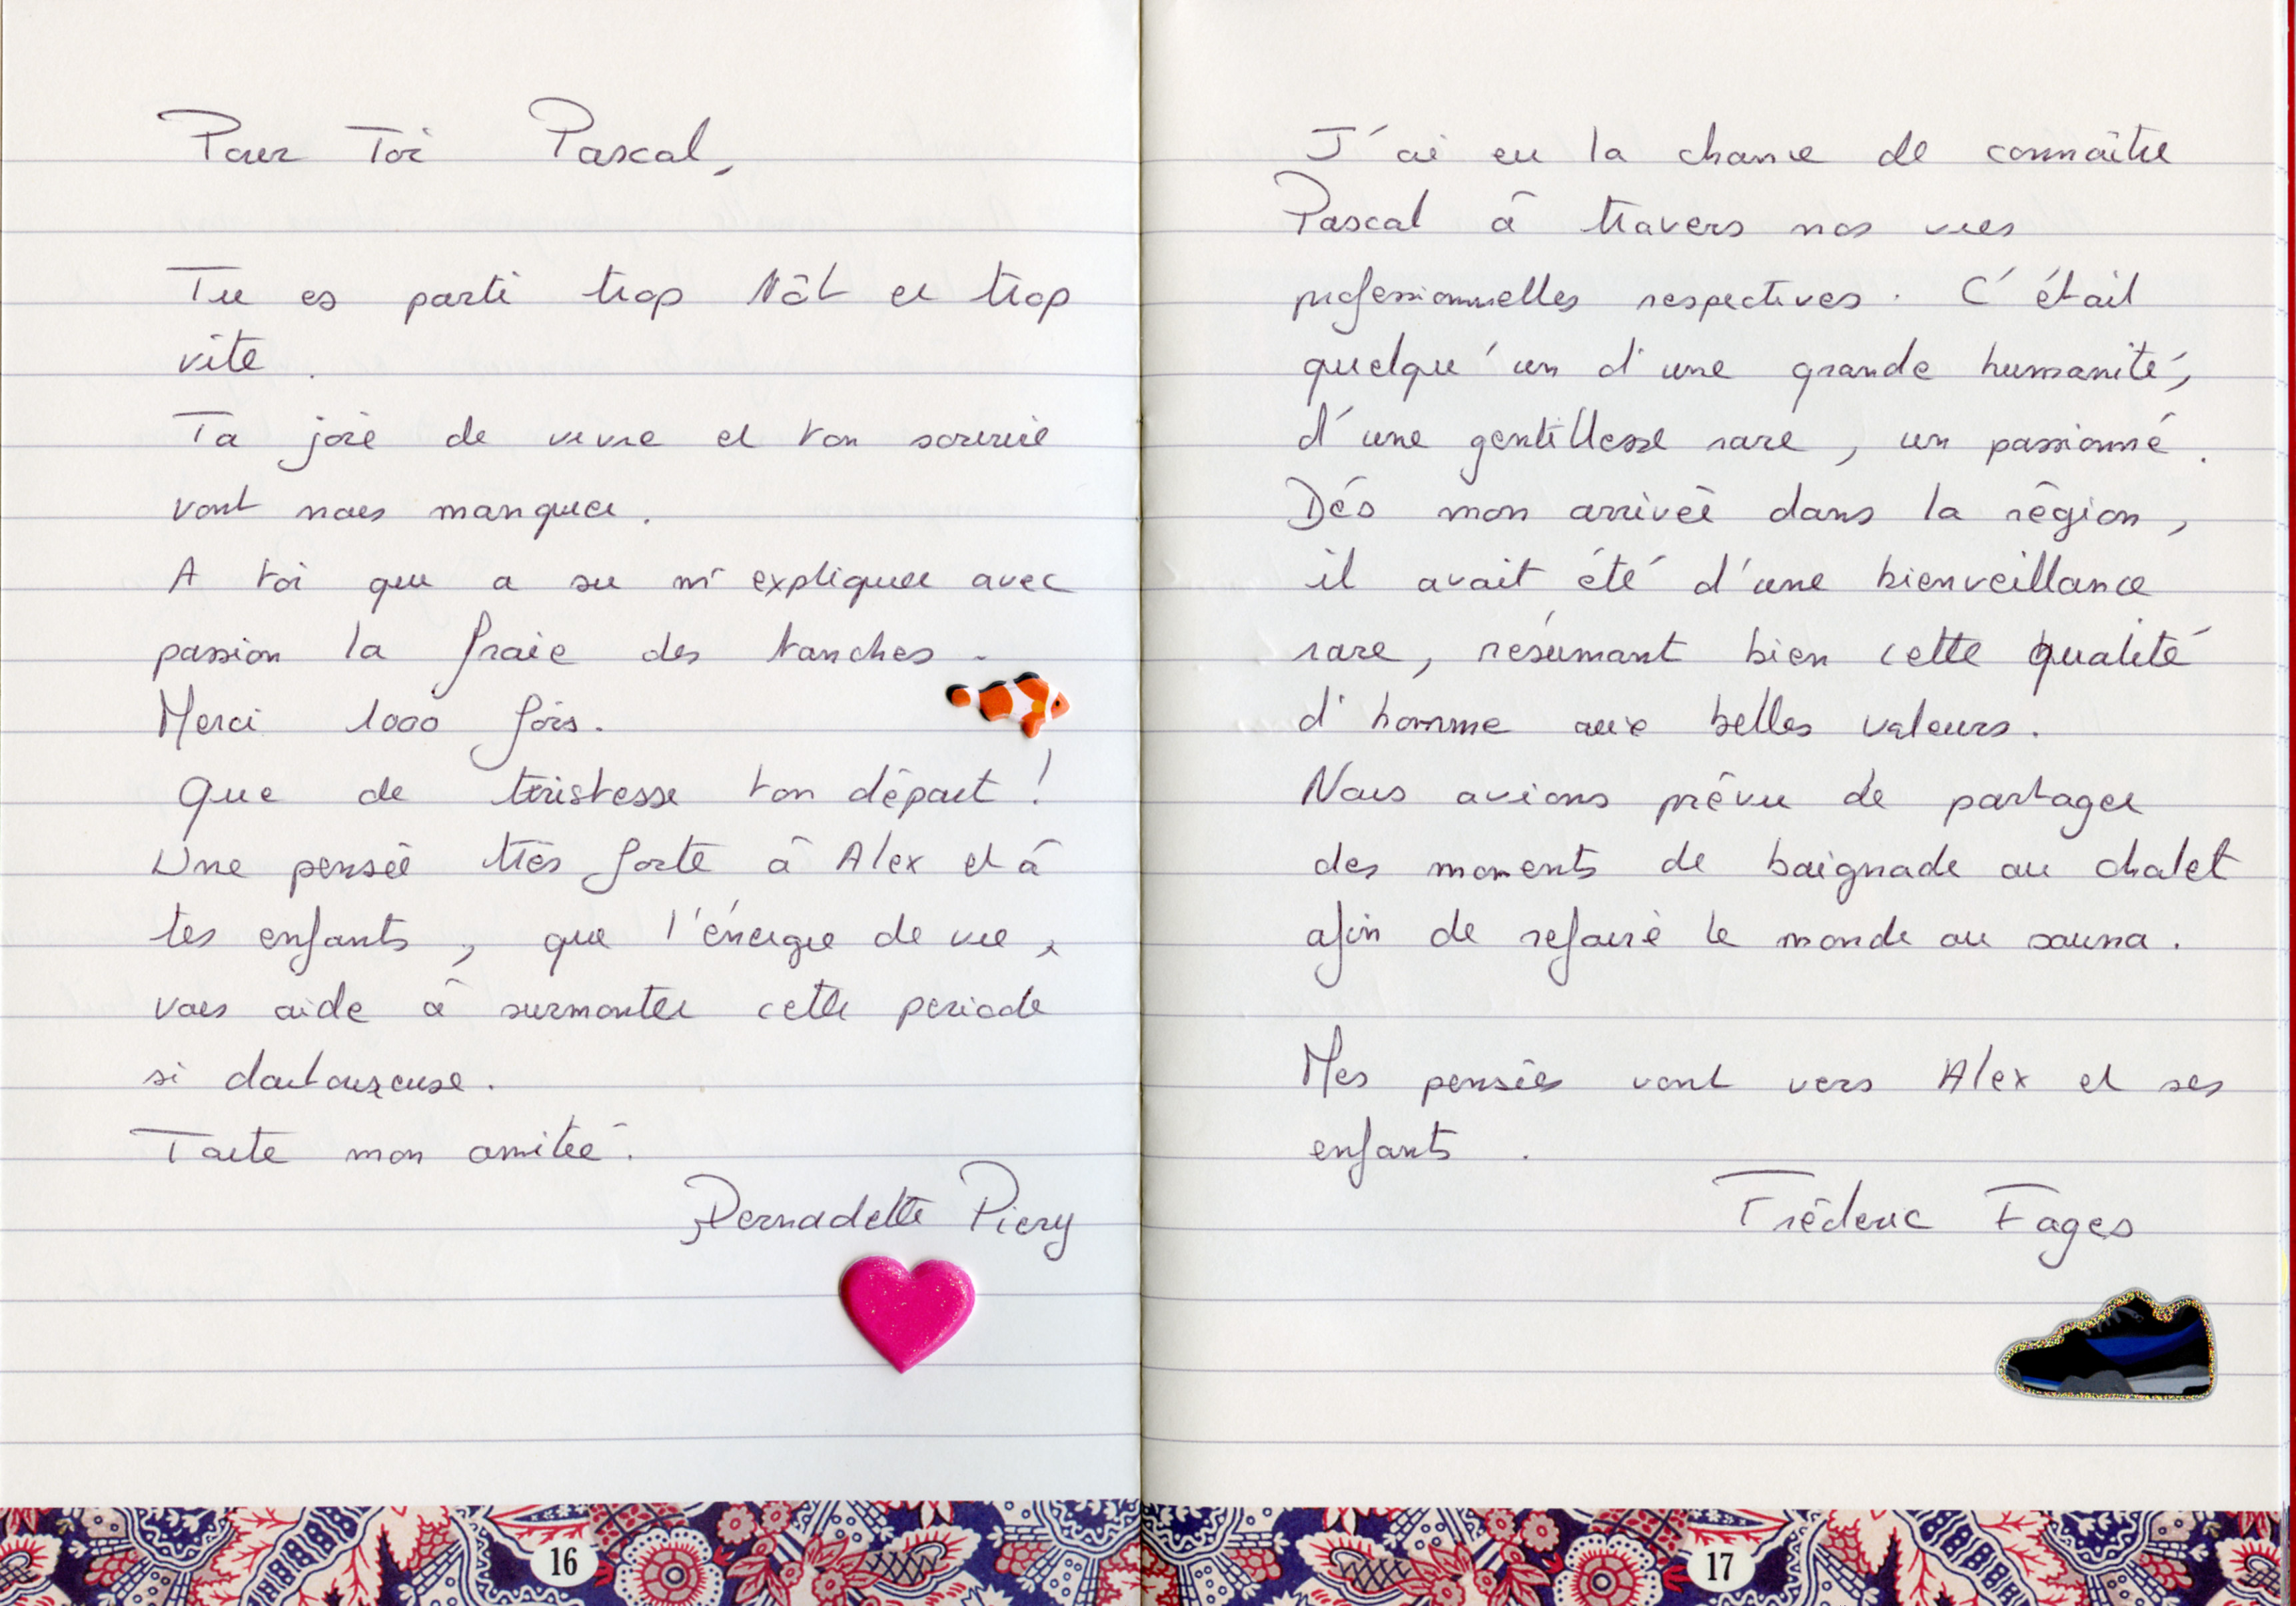 Pour Toi Pascal,
Tu es parti trop tôt et trop
vite .
Ta joie de vivre et ton sourire
vont nous manquer .
A toi qui a su m'expliquer avec
passion la fraie des tanches .
Merci 1000 fois .
Que de tristesse ton départ !
Une pensée très forte à Alex et à
tes enfants , que l'énergie de vie ,
vous aide à surmonter cette periode
si douloureuse .
Toute mon amitié .
Bernadette Piery
16
J'ai eu la chance de connaître
Pascal à travers nos vies
professionnelles respectives . C'était
quelqu'un d'une grande humanité,
d'une gentillesse rare , un passionné .
Dés mon arrivée dans la région ,
il avait été d'une bienveillance
rare , résumant bien cette qualité
d'homme aux belles valeurs .
Nous avions prévu de partager
des moments de baignade au chalet
afin de refaire le monde au sauna .
Mes pensées vont vers Alex et ses
enfants .
Fréderic Fages
17